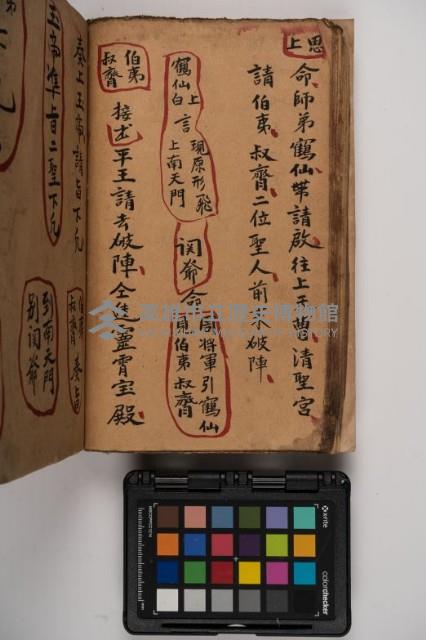 恩上
命師弟鶴仙帶請啟往上天曹清聖宮
請伯夷叔齊二位聖人前來破陣
鶴仙上白言
現原形飛上南天門
闵爺
命周將軍引鶴仙見伯夷叔齊
伯夷叔齊
接述平王請去破陣仝進靈霄宝殿
奏上玉帝請旨下凡
伯夷叔齊奏旨
玉帝准旨二聖下凡
到南天門別闵爺
高雄市立歷史博物館
x-rite
colorchecker